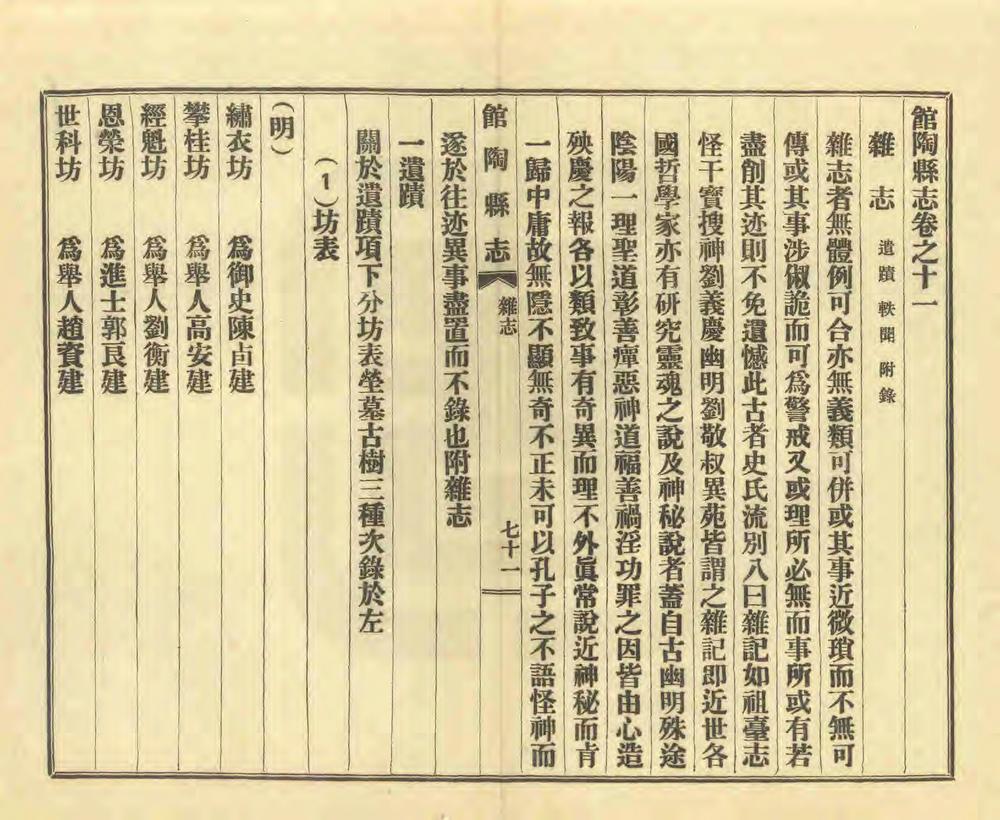 館陶縣志卷之十一
雜志 遺蹟 軼聞 附錄
雜志者無體例可合亦無義類可併或其事近微瑣而不無可
傳或其事涉俶詭而可爲警戒又或理所必無而事所或有若
盡削其迹則不免遺憾此古者史氏流別八曰雜記如祖臺志
怪干寶搜神劉義慶幽明劉敬叔異苑皆謂之雜記即近世各
國哲學家亦有研究靈魂之說及神秘說者蓋自古幽明殊途
陰陽一理聖道彰善癉惡神道福善禍淫功罪之因皆由心造
殃慶之報各以類致事有奇異而理不外眞常說近神秘而肯
一歸中庸故無隱不顯無奇不正未可以孔子之不語怪神而
館陶縣志 雜志 七十一
遂於往迹異事盡置而不錄也附雜志
一遺蹟
關於遺蹟項下分坊表塋墓古樹三種次錄於左
(1)坊表
(明)
繡衣坊 爲御史陳貞建
攀桂坊 爲舉人高安建
經魁坊 爲舉人劉衡建
恩榮坊 爲進士郭良建
世科坊 爲舉人趙資建